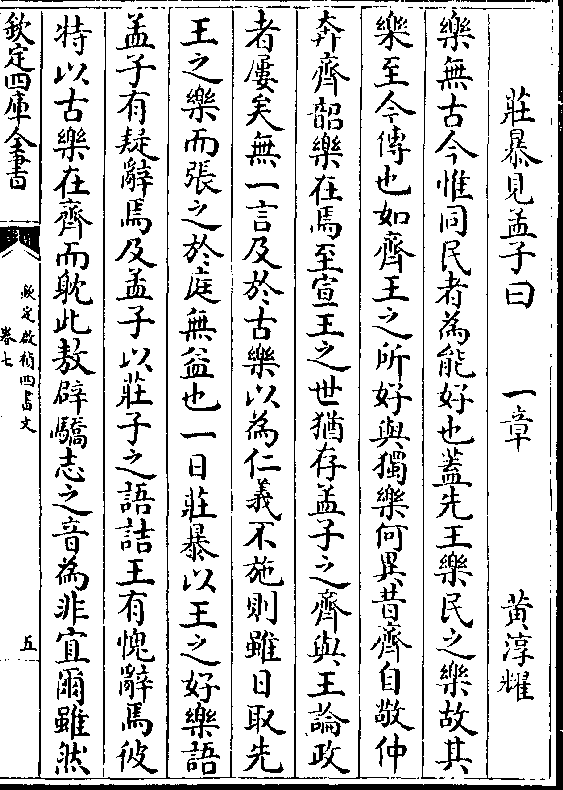 莊暴見孟子曰　一章　黃淳耀
樂無古今惟同民者為能好也蓋先王樂民之樂故其
樂至今傳也如齊王之所好與獨樂何異昔齊自敬仲
奔齊韶樂在焉至宣王之世猶存孟子之齊與王論政
者屢矣無一言及於古樂以為仁義不施則雖日取先
王之樂而張之於庭無益也一日莊暴以王之好樂語
孟子有疑辭焉及孟子以莊子之語詰王有愧辭焉彼
特以古樂在齊而耽此敖辟驕志之音為非宜爾雖然
欽定四庫全書
欽定啟禎四書文
卷七
五